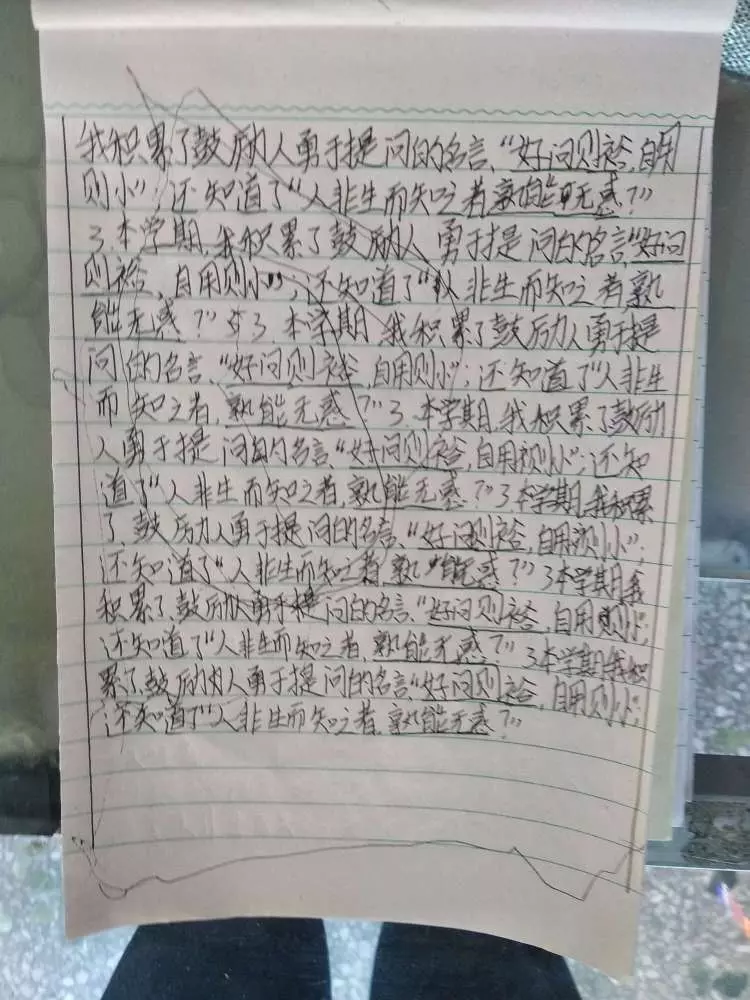 我积累了鼓励人勇于提问的名言,“好问则裕,自用
则小”;还知道了“人非生而知之者熟能无惑?”
3.本学期,我积累了鼓励人勇于提问的名言“好问
则裕,自用则小”;还知道了“人非生而知之者熟
能无惑?”3.本学期,我积累了鼓励人勇于提
问的名言、“好问则裕,自用则小”;还知道了“人非生
而知之者,熟能无惑?”3.本学期,我积累了鼓励
人勇于提问的名言,“好问则裕,自用则小”;还知
道了“人非生而知之者,熟能无惑?”3.本学期,我积累
了鼓励人勇于提问的名言、“好问则裕,自用则小”;
还知道了“人非生而知之者,熟能无惑?”3本学期我
积累了鼓励人勇于提问的名言,“好问则裕,自用则小”;
还知道了“人非生而知之者,熟能无惑?”3本学期我积
累了鼓励人勇于提问的名言“好问则裕,自用则小”;
还知道了“人非生而知之者,熟能无惑?”